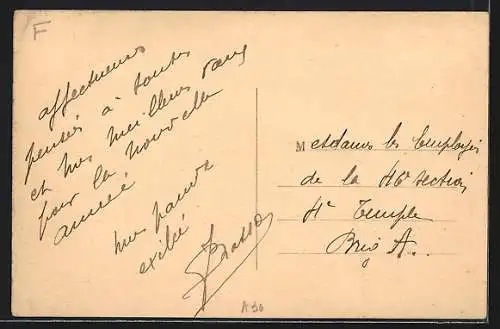 F
affectueuses
pensées à toutes
et mes meilleurs vœux
pour la nouvelle
année
une pauvre
exilée
Mesdames les Employées
de la 46e section
Hl Temple
A30